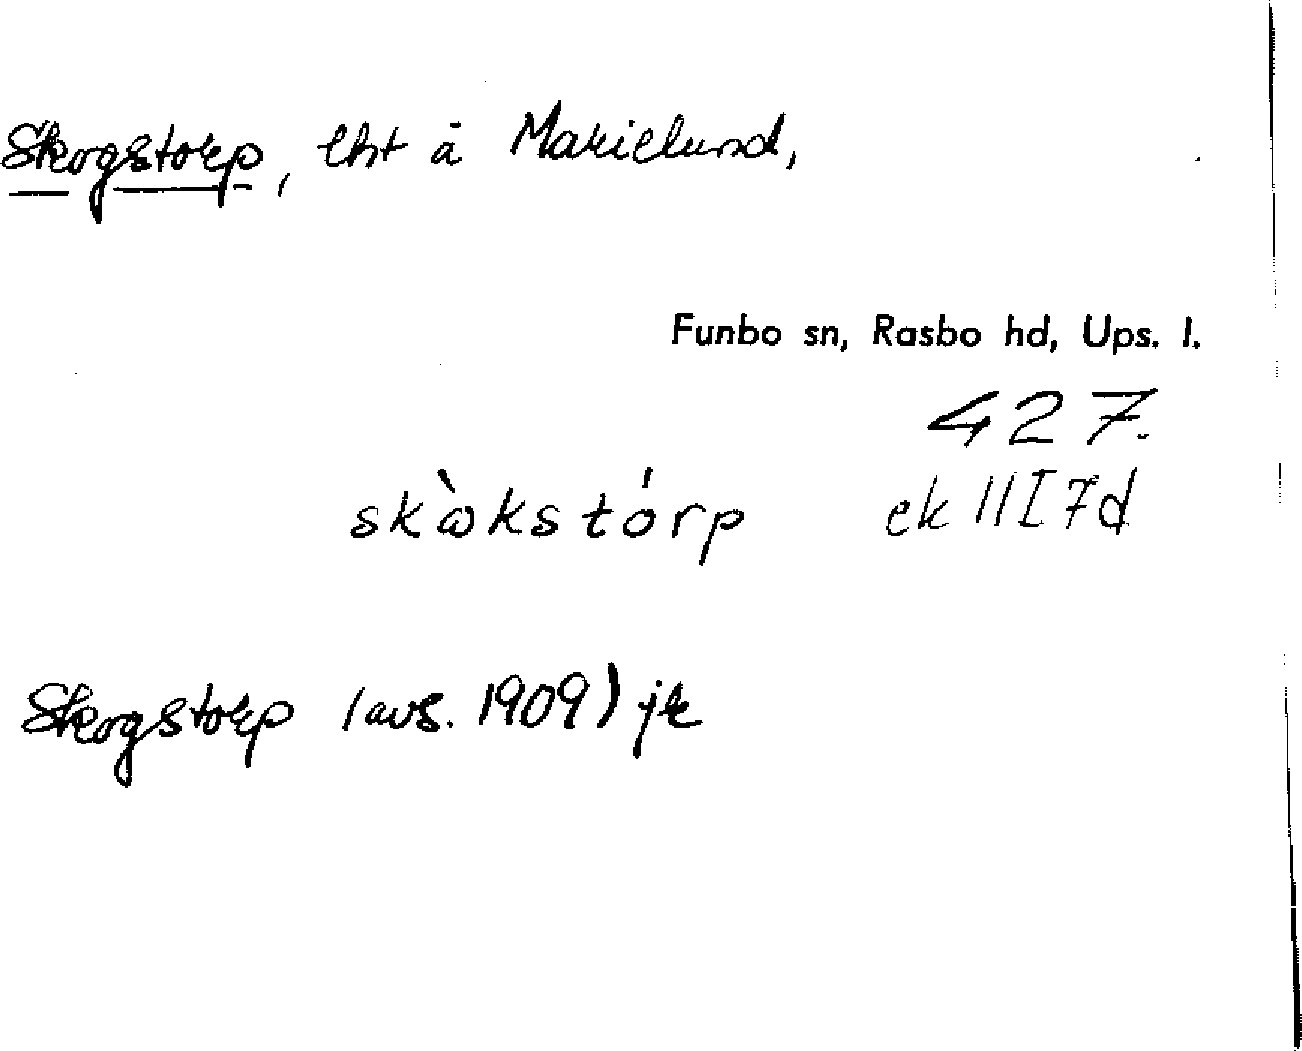 Skogstorp, lht å Marielund,
Funbo sn, Rasbo hd, Ups. l.
427.
skὼkstórp ek 11I7d
Skogstorp (avs. 1909) jk